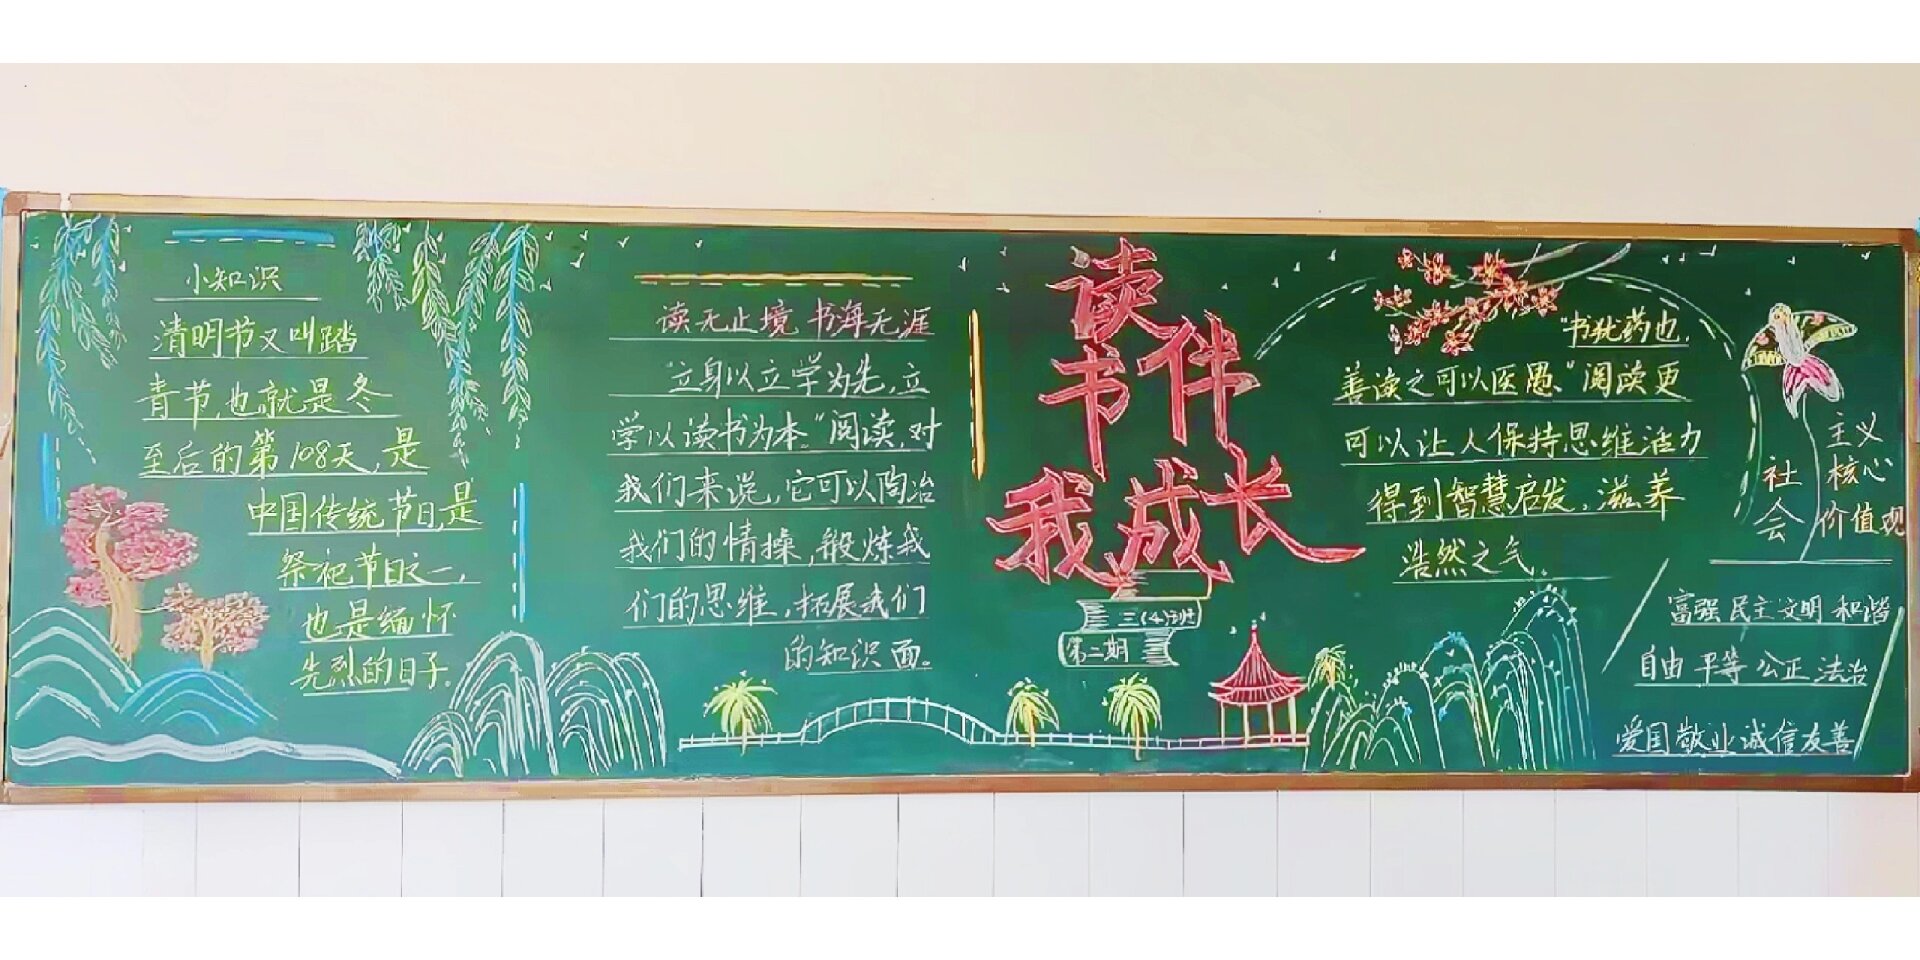 小知识
清明节又叫踏
青节,也就是冬
至后的第108天,是
中国传统节日,是
祭祀节日之一,
也是缅怀
先烈的日子。
读无止境 书海无涯
"立身以立学为先,立
学以读书为本。"阅读,对
我们来说,它可以陶冶
我们的情操,锻炼我
们的思维,拓展我们
的知识面。
读书伴
我成长
三(4)班
第二期
"书犹药也,
善读之可以医愚。"阅读更
可以让人保持思维活力
得到智慧启发,滋养
浩然之气。
社会
主义
核心
价值观
富强 民主 文明 和谐
自由 平等 公正 法治
爱国 敬业 诚信 友善